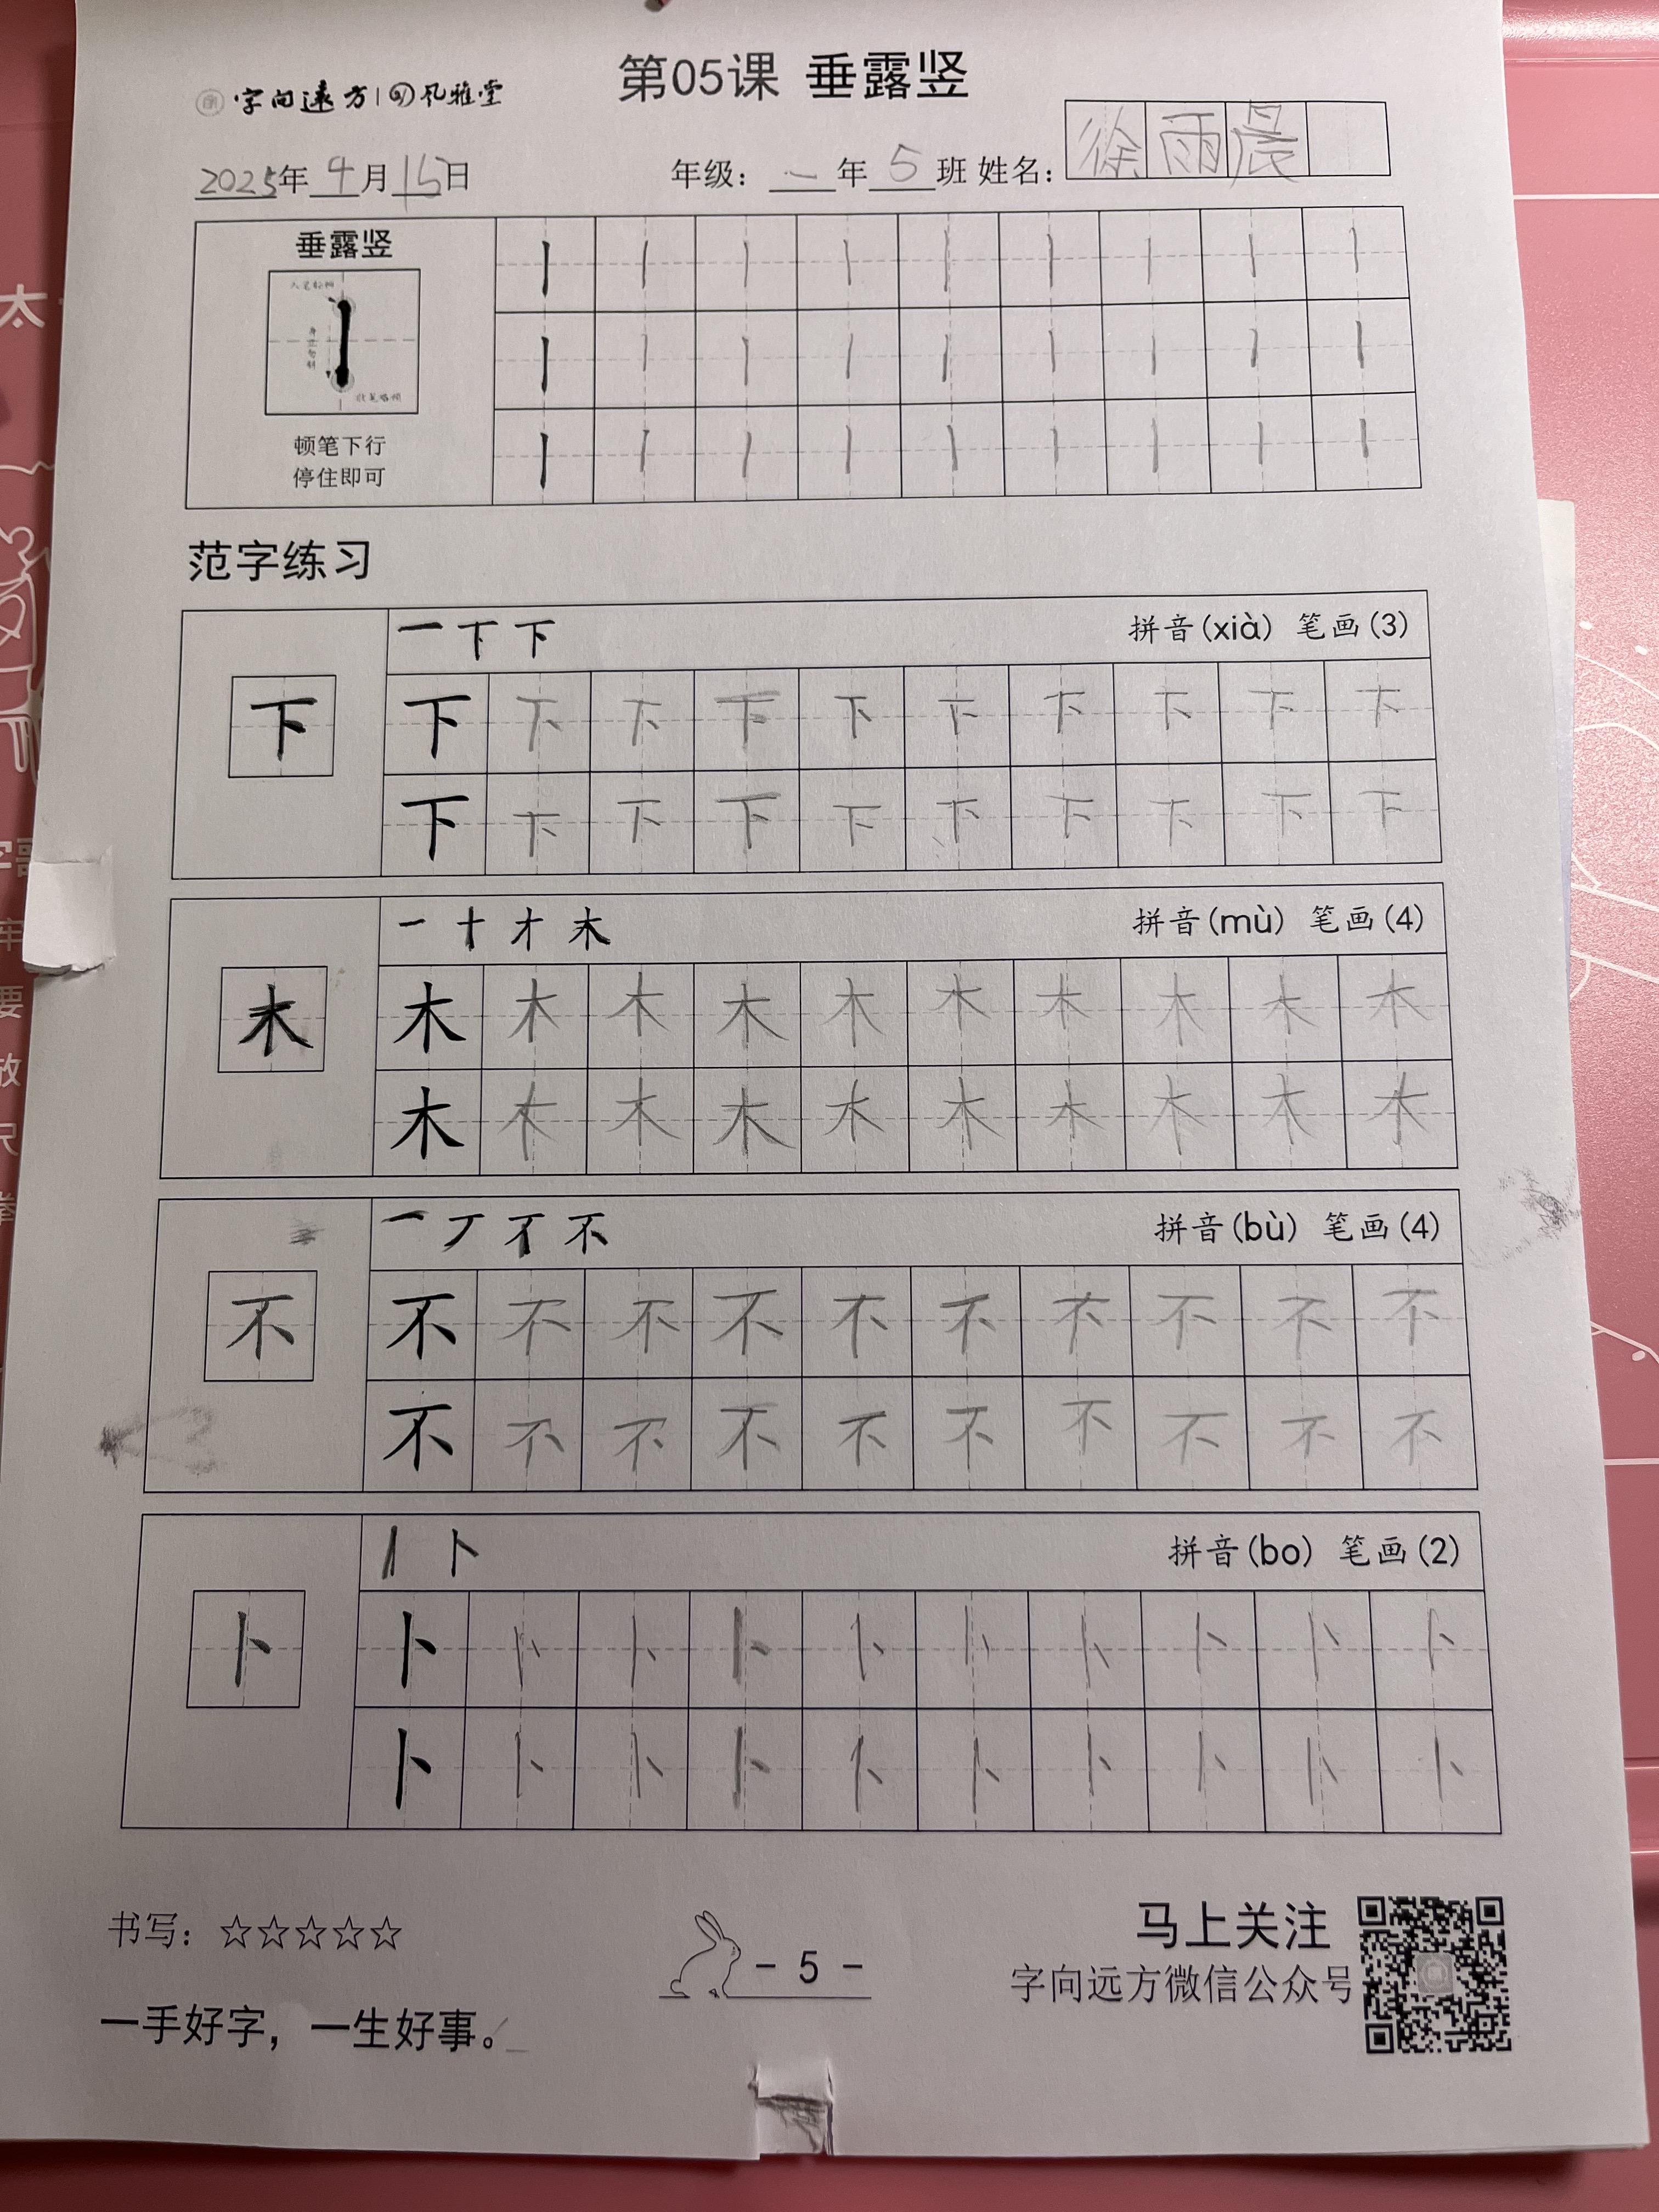 第05课 垂露竖
字向远方 风雅堂
2025年4月15日 年级：一年5班 姓名：徐雨晨
垂露竖
顿笔下行
停住即可
丨丨丨丨丨丨丨丨丨
丨丨丨丨丨丨丨丨丨
丨丨丨丨丨丨丨丨丨
范字练习
一 丅 下 拼音(xià) 笔画(3)
下
下下下下下下下下下下
下下下下下下下下下下
一 十 才 木 拼音(mù) 笔画(4)
木
木木木木木木木木木木
木木木木木木木木木木
一 丆 不 拼音(bù) 笔画(4)
不
不不不不不不不不不不
不不不不不不不不不不
丨 卜 拼音(bo) 笔画(2)
卜
卜卜卜卜卜卜卜卜卜卜
卜卜卜卜卜卜卜卜卜卜
书写：☆☆☆☆☆
- 5 -
马上关注
字向远方微信公众号
一手好字，一生好事。
太
字
牢
要
放
尺
拳